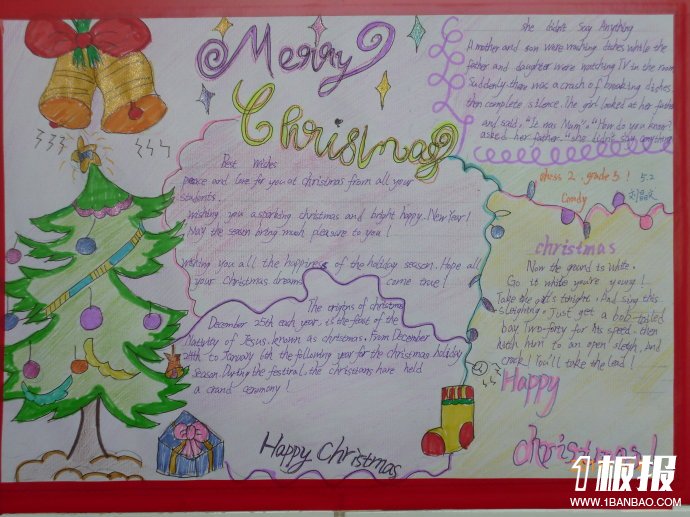 Merry
Christmas
she didn't Say Anything
A mother and son were washing dishes while the
father and daughter were watching TV in the room
Suddenly there was a crash of breaking dishes,
then complete silence. The girl looked at her father
and said, "It was Mum". "How do you know?"
asked her father. "she didn't say anything
class 2, grade 5! 5.2
Candy
Best Wishes
peace and love for you at christmas from all your
students.
wishing you a sparking christmas and bright happy New Year!
May the season bring much pleasure to you!
wishing you all the happiness of the holiday season. Hope all
your Christmas dreams come true!
The origins of christmas
December 25th each year, is the feast of the
Nativity of Jesus, known as christmas. From December
24th to January 6th the following year for the christmas holiday
season. During the festival, the christians have held
a grand ceremony!
Happy Christmas
christmas
Now the ground is white.
Go it while you're young!
Take the girls tonight. And sing this
sleighing. Just get a bob-tailed
bay Two-forty for his speed. then
him to an open sleigh, and
crack! You'll take the lead!
Happy
christmas!
板报
WWW.1BANBAO.COM